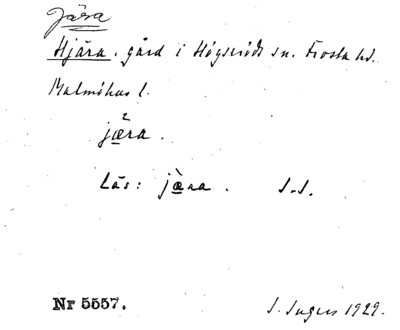 Jära
Hjära. gård i Högseröds sn. Frosta hd.
Malmöhus l.
jæ̲ra.
Läs: jæ̲̀ra. S.I.
Nr 5557.
S. Ingers 1929.